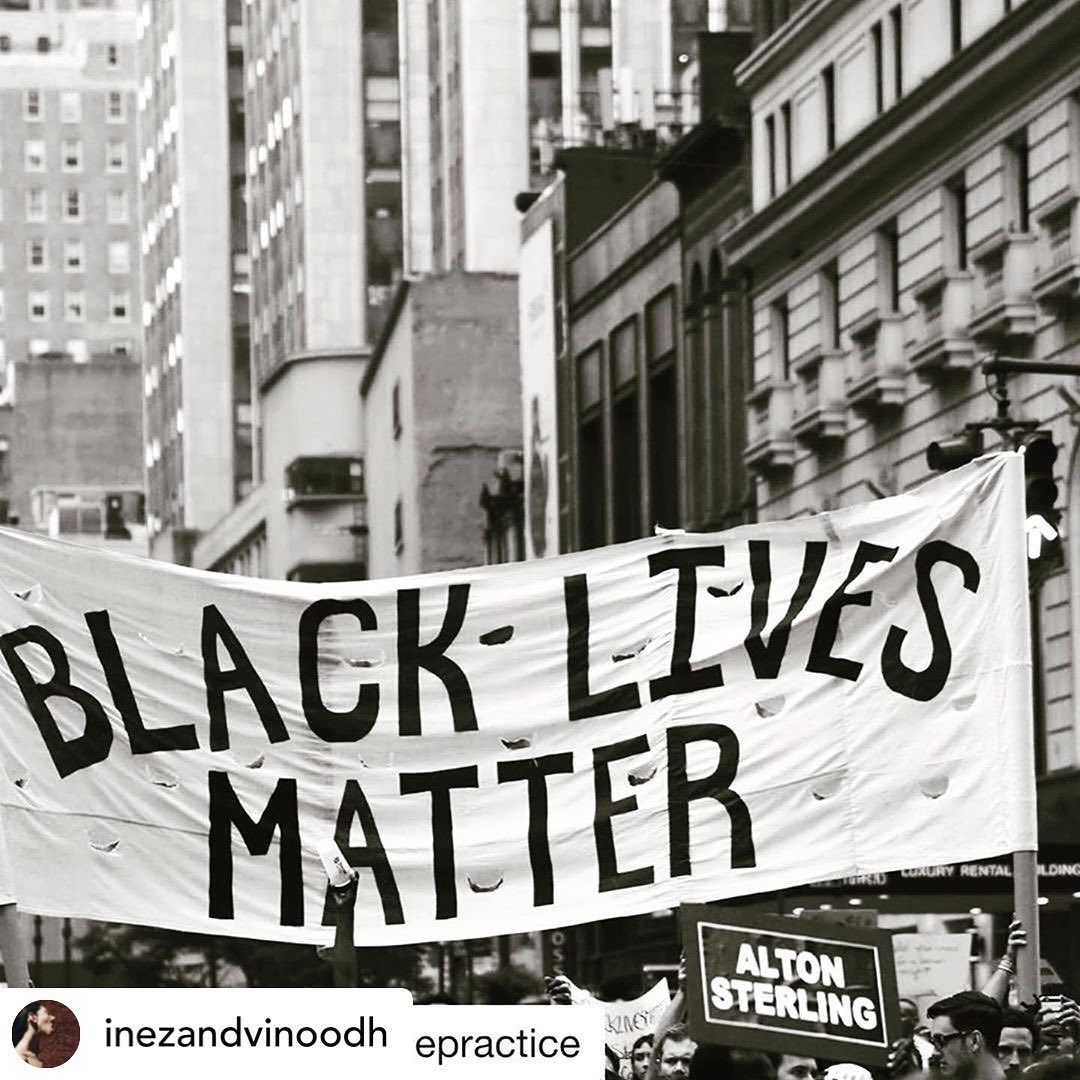 BLACK LIVES
MATTER
LUXURY RENTAL
ALTON
STERLING
inezandvinoodh
epractice